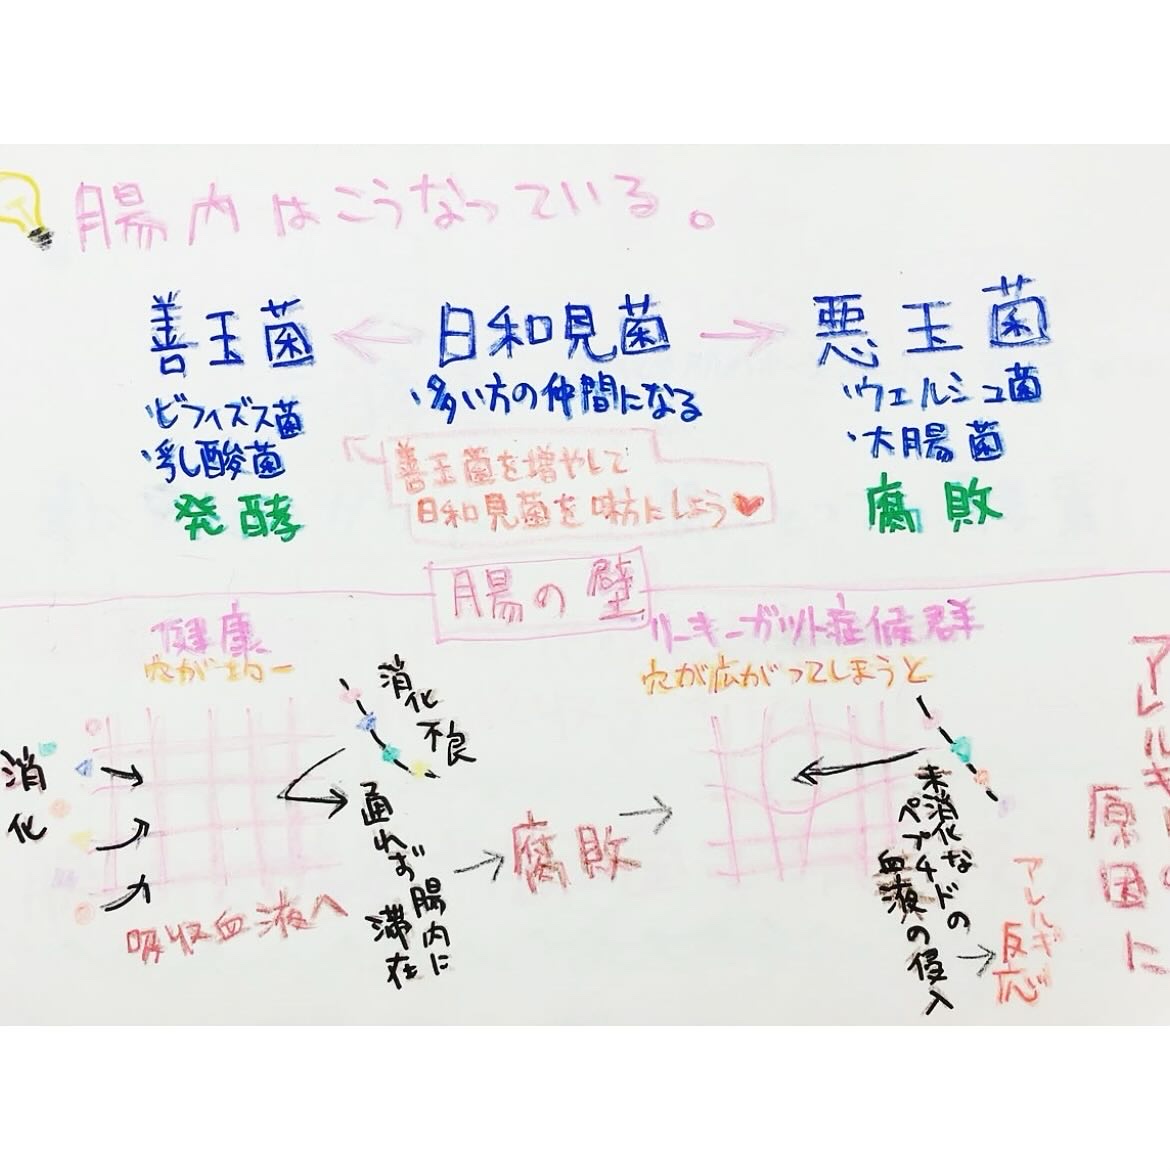 腸内はこうなっている。
善玉菌
日和見菌
悪玉菌
・ビフィズス菌
・乳酸菌
発酵
・多い方の仲間になる
善玉菌を増やして
日和見菌を味方にしよう
・ウェルシュ菌
・大腸菌
腐敗
腸の壁
健康
穴が均一
消化
吸収血液へ
消化
不良
通れず
腸内に
滞在
腐敗
リーキーガット症候群
穴が広がってしまうと
未消化な
ペプチドの
血液の侵入
アレルギー
反応
アレルギー
原因に